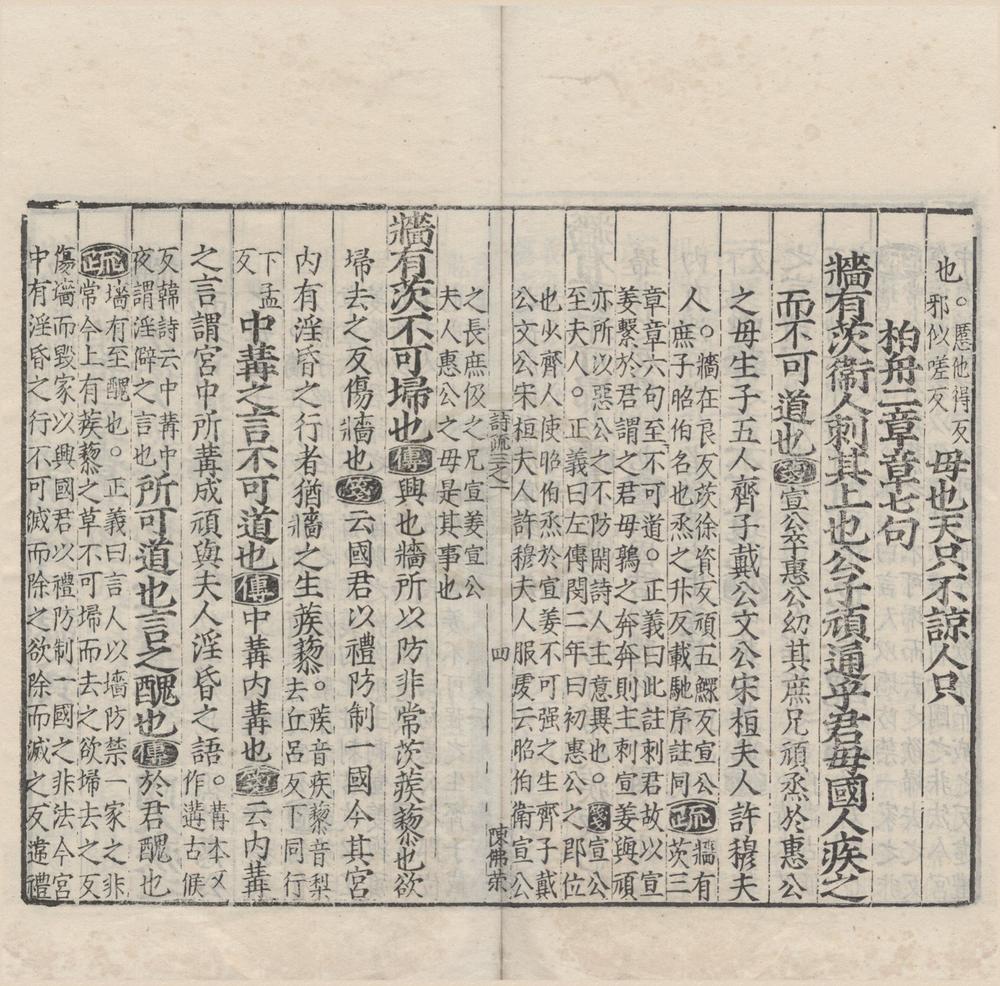 也。慝他得反
邪似嗟反
母也天只不諒人只
柏舟二章章七句
牆有茨衞人刺其上也公子頑通乎君母國人疾之
而不可道也箋宣公卒惠公幼其庶兄頑烝於惠公
之母生子五人齊子戴公文公宋桓夫人許穆夫
人。牆在良反茨徐資反頑五鰥反宣公
庶子昭伯名也烝之升反載馳序註同
疏牆有
茨三
章章六句至不可道。正義曰此註刺君故以宣
姜繫於君謂之君母鶉之奔奔則主刺宣姜與頑
亦所以惡公之不防閑詩人主意異也。箋宣公
至夫人。正義曰左傳閔二年曰初惠公之即位
也少齊人使昭伯烝於宣姜不可强之生齊子戴
公文公宋桓夫人許穆夫人服䖍云昭伯衛宣公
詩疏三之一
四
陳佛荣
之長庶伋之兄宣姜宣公
夫人惠公之母是其事也
牆有茨不可埽也傳興也牆所以防非常茨蒺藜也欲
埽去之反傷牆也箋云國君以禮防制一國今其宮
内有淫昏之行者猶牆之生蒺藜。蒺音疾藜音梨
去丘吕反下同行
下孟
反
中冓之言不可道也傳中冓内冓也箋云内冓
之言謂宮中所冓成頑與夫人淫昏之語。冓本又
作遘古候
反韓詩云中冓中
夜謂淫僻之言也
所可道也言之醜也傳於君醜也
疏墻有至醜也。正義曰言人以墻防禁一家之非
常今上有蒺藜之草不可埽而去之欲埽去之反
傷墻而毀家以興國君以禮防制一國之非法今宮
中有淫昏之行不可滅而除之欲除而滅之反違禮